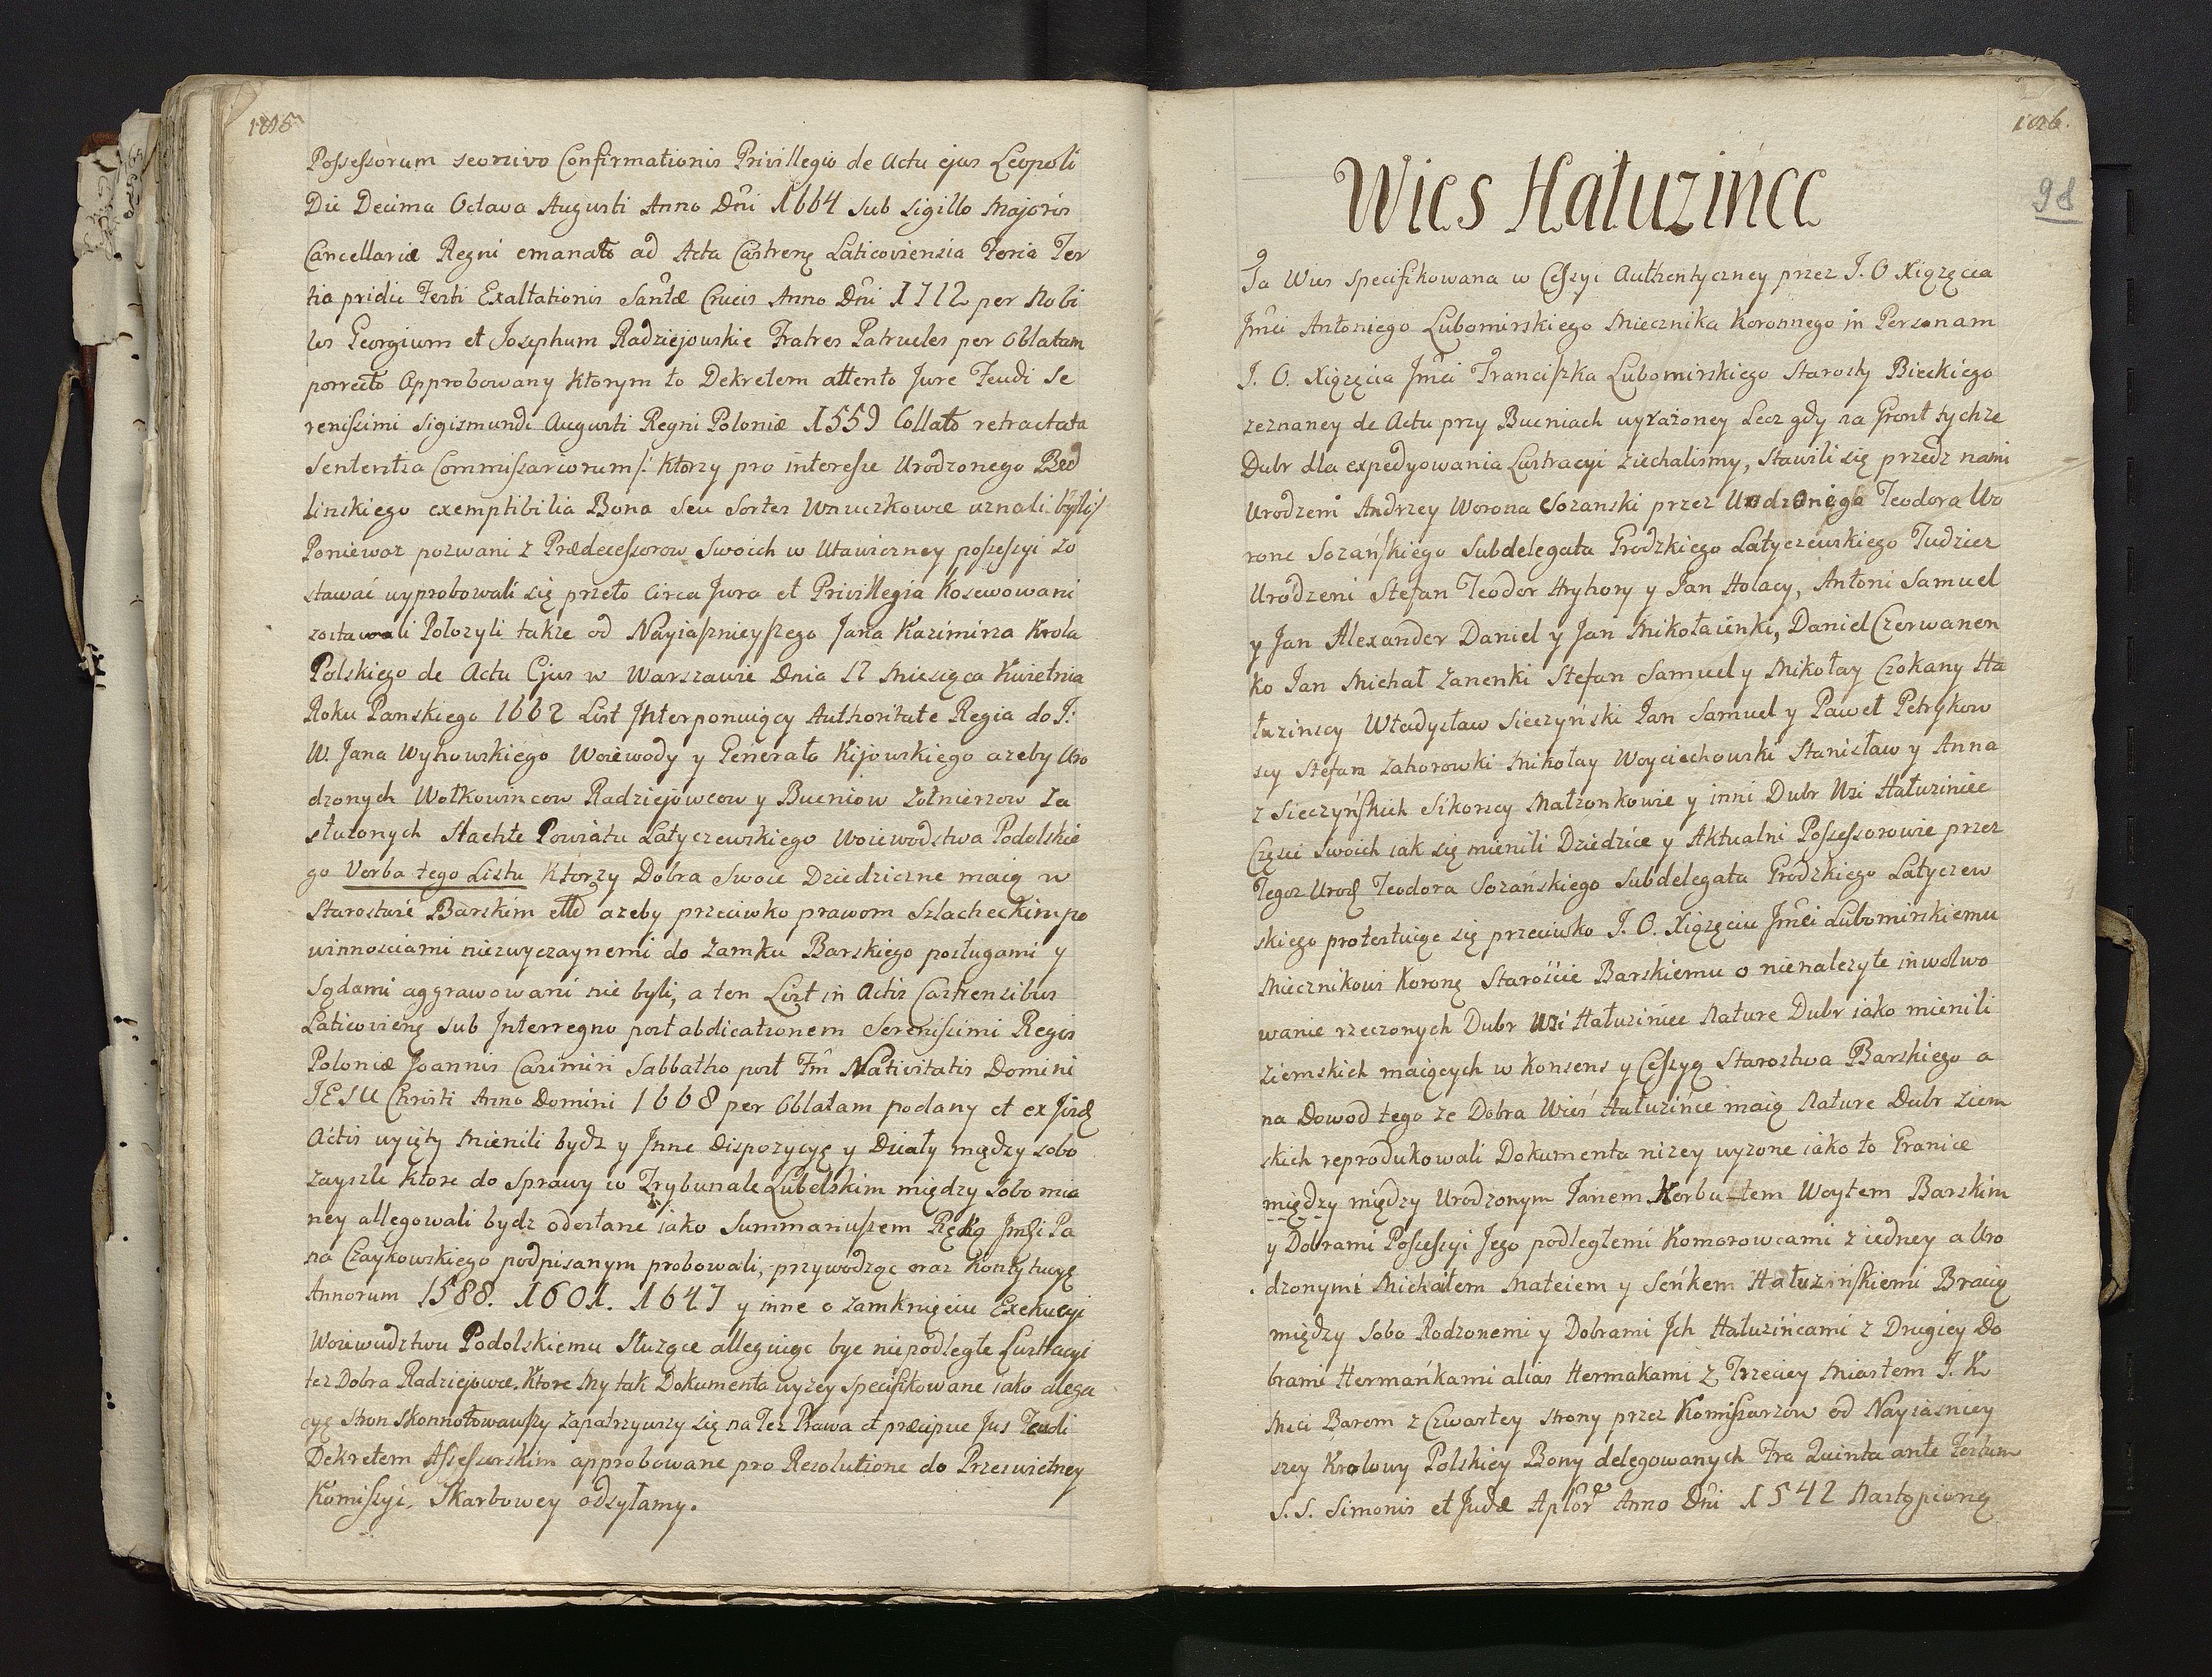 Possessorum seorsivo Confirmationis Privillegio de Actu ejus Leopoli
Die Decima Octava Augusti Anno Dni 1664 sub Sigillo Majoris
Cancellariæ Regni emanato ad Acta Castreng Laticoviensia Feria Ter
tia pridie Festi Exaltationis Santæ Crucis Anno Dni 1712 per Nobi
les Georgium et Josephum Radziejowskie Fratres Patrueles per Oblatam
porrecto Approbowany Ktorym to Dekretem attento Jure Feudi Se
renissimi Sigismundi Augusti Regni Poloniæ 1559 Collato retractata
Sententia Commissariorum /: Ktorzy pro interesse Urodzonego Bed
linskiego exemptibilia Bona Seu Sortes Wnuczkowce uznali byli /
Poniewaz pozwani z Prædecessorow Swoich w Utawiczney possessyi zo
stawać wyprobowali się przeto Circa Jura et Privillegia Kosewowani
zostawali Polozyli takze od Nayiasnieyszego Jana Kazimirza Krola
Polskiego de Actu Ejus w Warszawie Dnia 12 Miesiąca Kwietnia
Roku Panskiego 1662 List Interponuiący Authoritate Regia do J:
W. Jana Wyhowskiego Woiewody y Generała Kijowskiego azeby Uro
dzonych Wołkowincow Radziejowcow y Bucniow Zołnierzow Za
słuzonych Slachte Powiatu Latyczewskiego Woiewodstwa Podolskie
go Verba tego Listu Ktorzy Dobra Swoie Dziedziczne maią w
Starostwie Barskim etto azeby przeciwko prawom Szlacheckim po
winnosciami niezwyczaynemi do Zamku Barskiego posługami y
Sądami aggrawowani nie byli, a ten List in Actis Castrensibus
Laticovieng sub Interregno post abdicationem Serenissimi Regis
Poloniæ Joannis Casimiri Sabbatho post Fm Nativitatis Domini
JESU Christi Anno Domini 1668 per Oblatam podany et ex Jisd
Actis wyięty Mienili bydz y Jnne Dispozycyę y Działy mędzy sobo
Zayszłe Ktore do Sprawy w Trybunale Lubelskim między Sobo mia
ney allegowali bydz odesłane iako Summariuszem Ręką Jmci Pa
na Czaykowskiego podpisanym probowali, przywodząc oraz Konstytucyę
Annorum 1588. 1601. 1647 y inne o Zamknięciu Exekucyi
Woiewudztwu Podolskiemu Słuzące alleguiąc bye niepodległe Lustracyi
tez Dobra Radziejowce. Ktore My tak Dokumenta wyzey specifikowane iako allega
cyę Stron Skonnotowawszy Zapatrzywszy się na Tez Prawa et præcipue Jus Feudi
Dekretem Assessorskim approbowane pro Resolutione do Przeswietney
Komissyi Skarbowey odsyłamy.
1026.
98
Wies Hałuzińce
Ta Wies Specifikowana w Cessyi Authentyczney przez J. O Xiązęcia
Jmci Antoniego Lubomirskiego Miecznika Koronnego in Personam
J. O. Xiązęcia Jmci Franciszka Lubomirskiego Starosty Bieckiego
zeznaney de Actu przy Bucniach wyrazoney Lecz gdy na Gront tychze
Dubr dla expedyowania Lustracyi Ziechalismy, Stawili się przedz nami
Urodzeni Andrzey Worona Sozanski przez Urodzonego Teodora Wo
rone Sozańskiego Subdelegata Grodzkiego Latyczewskiego Tudziez
Urodzeni Stefan Teodor Hryhory y Jan Holacy, Antoni Samuel
y Jan Alexander Daniel y Jan Mikołaienki, Daniel Czerwanen
ko Jan Michał Zanenki Stefan Samuel y Mikołay Czokany Ha
łuzinscy Władysław Sieczyński Jan Samuel y Paweł Petrykow
scy Stefan Zahorowski Mikołay Woyciechowski Stanisław y Anna
z Sieczyńskich Sikorscy Małzonkowie y inni Dubr Wsi Hałuziniec
Częsci Swoich iak się mienili Dziedzice y Aktualni Possessorowie przez
Tegoz Urod Teodora Sozańskiego Subdelegata Grodzkiego Latyczew
skiego protestuiąc się przeciwko J. O. Xiązęciu Jmci Lubomirskiemu
Miecznikowi Korong Staroscie Barskiemu o nienalezyte inwolwo
wanie rzeczonych Dubr Wsi Hałuziniec Nature Dubr iako mienili
Ziemskich maiących w Konsens y Cessyą Starostwa Barskiego a
na Dowod tego ze Dobra Wieś Hałuzińce maią Nature Dubr Ziem
skich reprodukowali Dokumenta nizey wyzone iako to Granice
między między Urodzonym Janem Korbutem Woytem Barskim
y Dobrami Possessyi Jego podległemi Komorowcami z iedney a Uro
dzonymi Michałem Mateiem y Seńkem Hałuzińskiemi Bracią
między Sobo Rodzonemi y Dobrami Jch Hałuzińcami z Drugiey Do
brami Hermańkami alias Hermakami Z Trzeciey Miastem J. K
Mci Barem z Czwartey strony przez Komissarzow od Nayiasniey
szey Krolowy Polskiey Bony delegowanych Fra Quinta ante Festum
S. S. Simonis et Judæ Aplor Anno Dni 1542 Nastąpioną